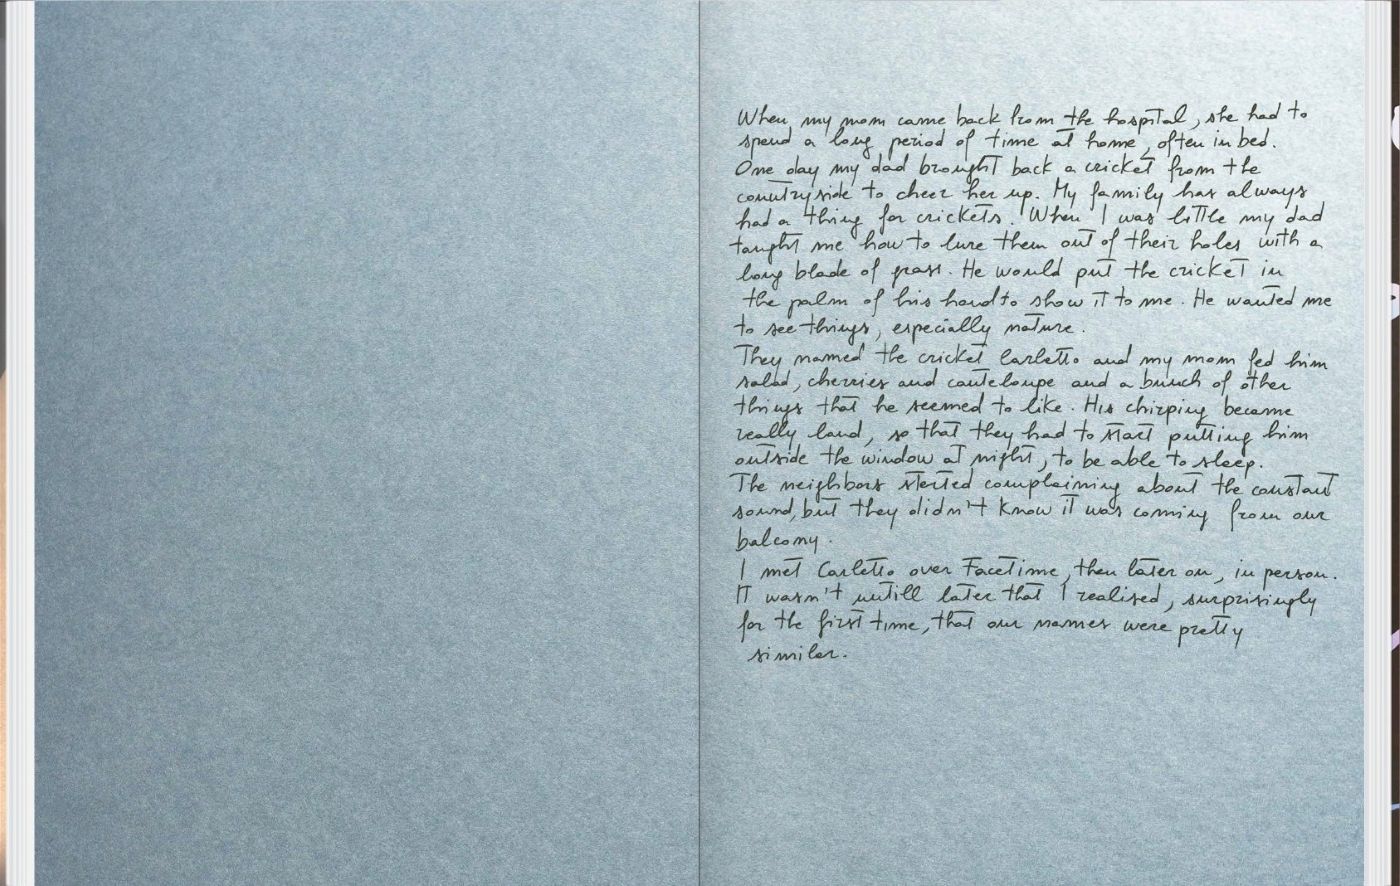 When my mom came back from the hospital, she had to
spend a long period of time at home, often in bed.
One day my dad brought back a cricket from the
countryside to cheer her up. My family has always
had a thing for crickets. When I was little my dad
taught me how to lure them out of their holes with a
long blade of grass. He would put the cricket in
the palm of his hand to show it to me. He wanted me
to see things, especially nature.
They named the cricket Carletto and my mom fed him
salad, cherries and canteloupe and a bunch of other
things that he seemed to like. His chirping became
really loud, so that they had to start putting him
outside the window at night, to be able to sleep.
The neighbors started complaining about the constant
sound, but they didn't know it was coming from our
balcony.
I met Carletto over Facetime, then later on, in person.
It wasn't untill later that I realised, surprisingly
for the first time, that our names were pretty
similar.